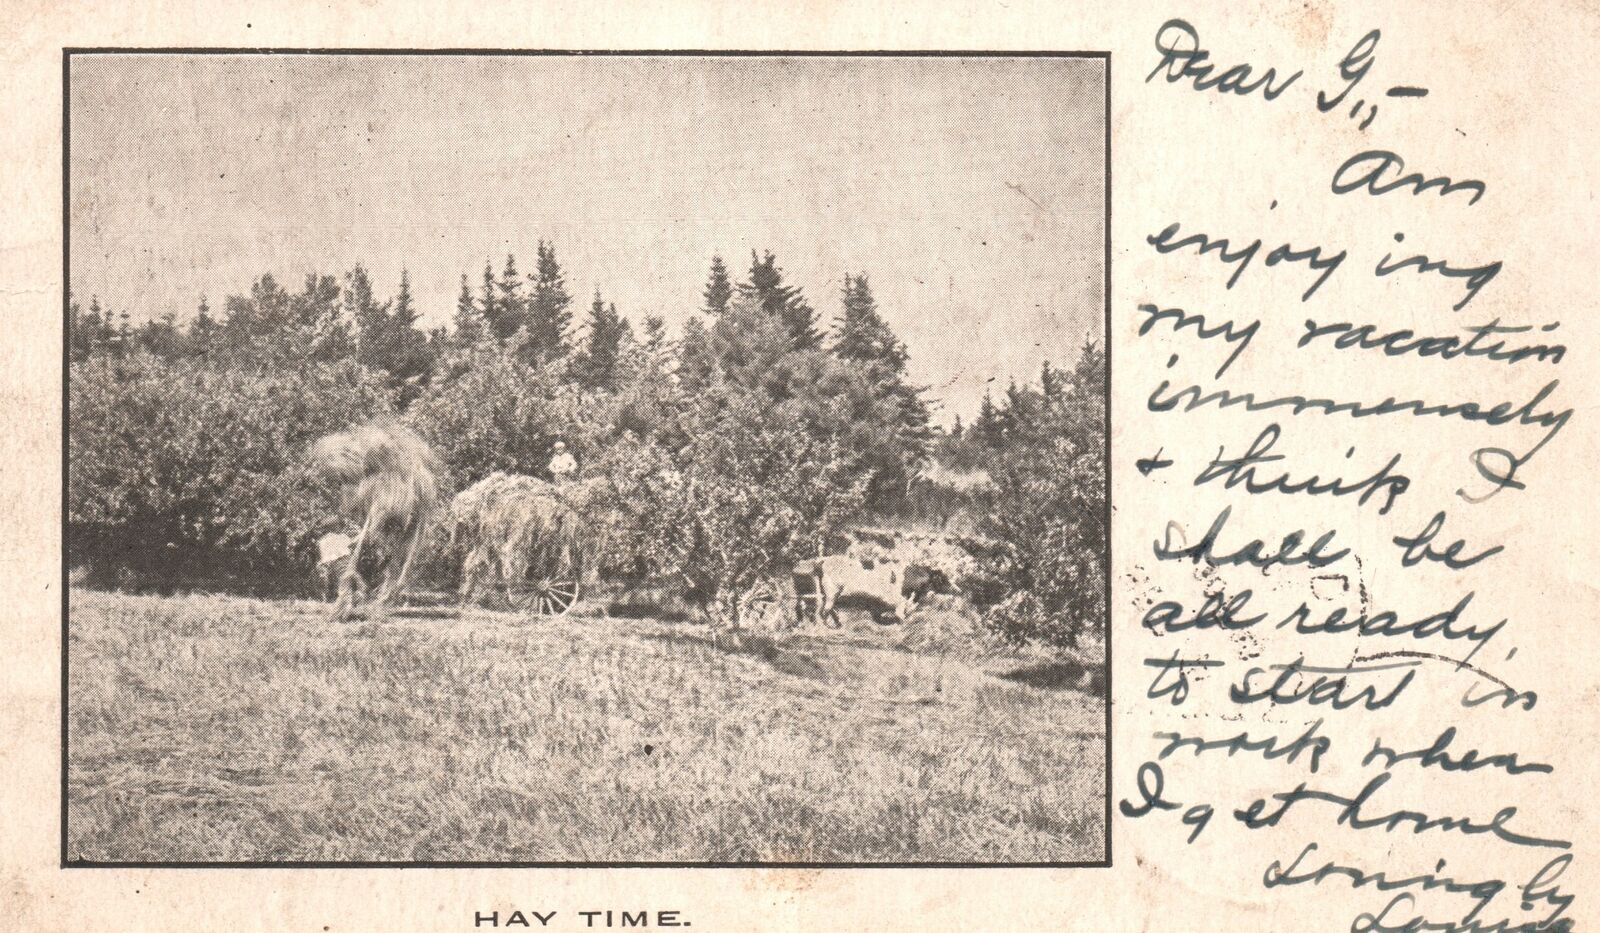 Dear G.,-
Am
enjoying
my vacation
immensely
+ think I
shall be
all ready,
to start in
work when
I get home
Lovingly
Louise
HAY TIME.